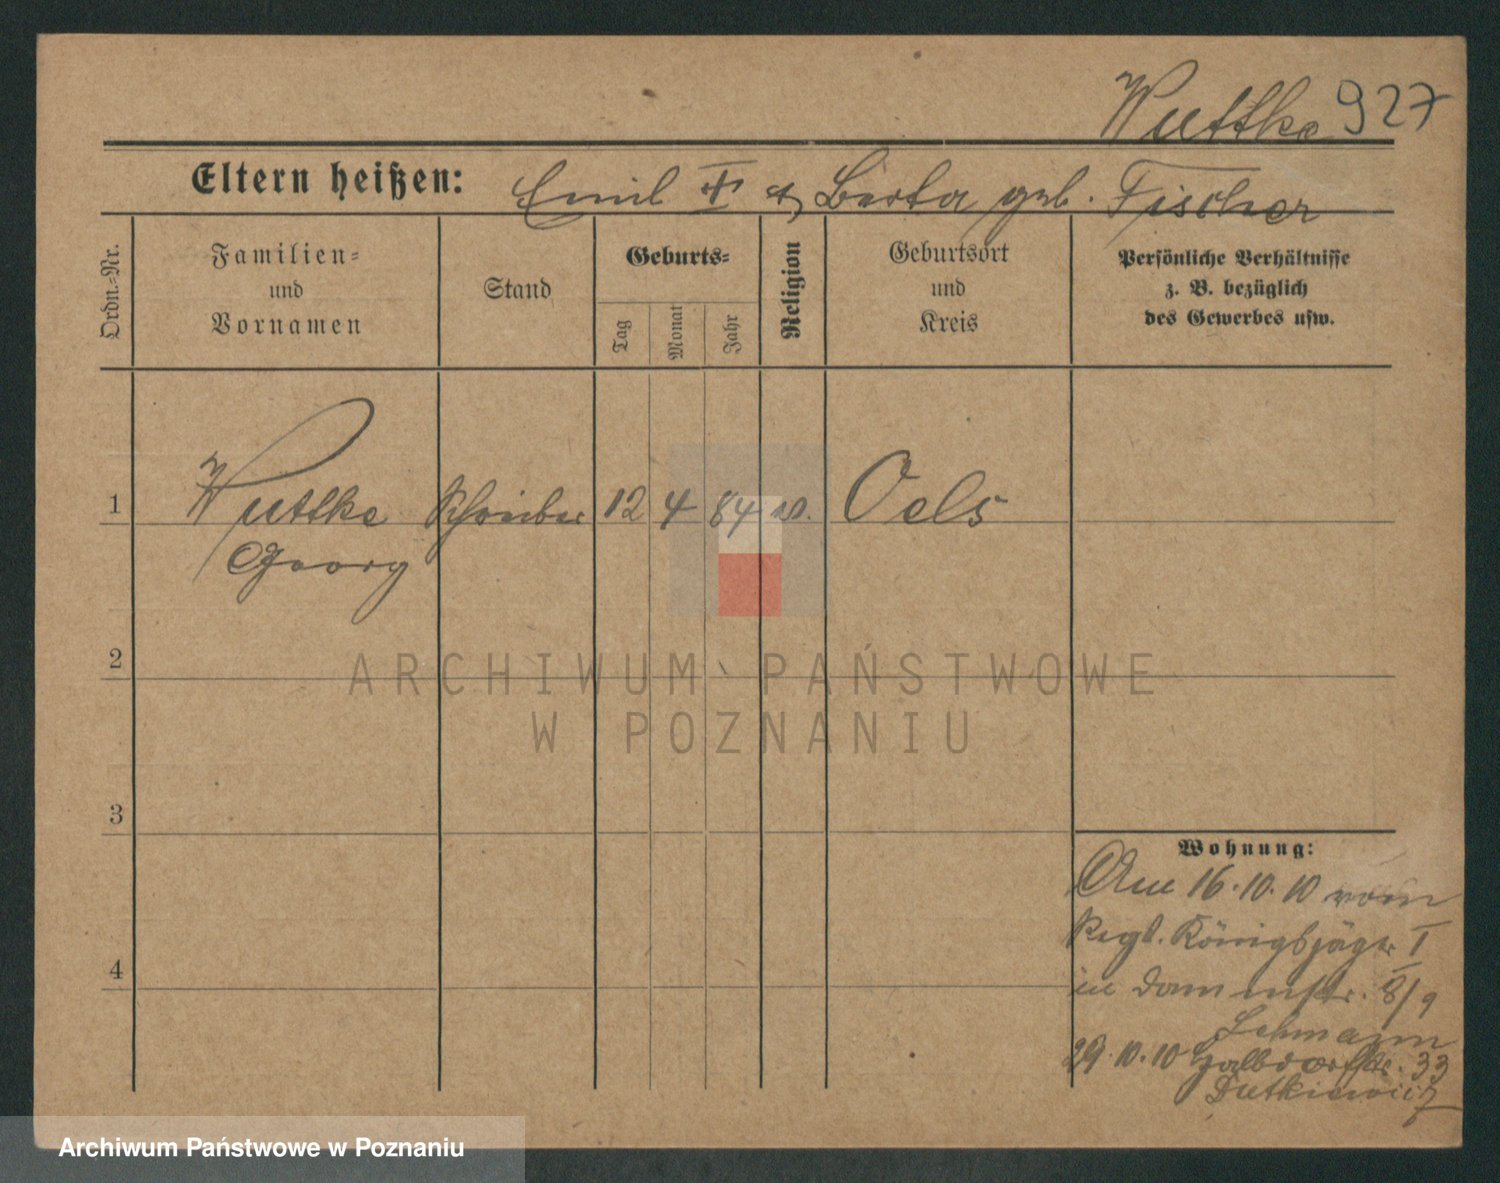 Wuttke 927
Eltern heißen: Emil ✝ & Berta geb. Fischer
Ordn.-Nr.
Familien-
und
Vornamen
Stand
Geburts-
Tag
Monat
Jahr
Religion
Geburtsort
und
Kreis
Persönliche Verhältnisse
z. B. bezüglich
des Gewerbes usw.
1 Wuttke Schreiber 12 4 84 ev. Oels
Georg
2
3
4
Wohnung:
Am 16.10.10 vom
Regt. Königsjäger I
in Dammstr. 8/9
Lehmann
29.10.10 Halbdorfstr. 33
Dutkiewicz
ARCHIWUM PAŃSTWOWE
W POZNANIU
Archiwum Państwowe w Poznaniu